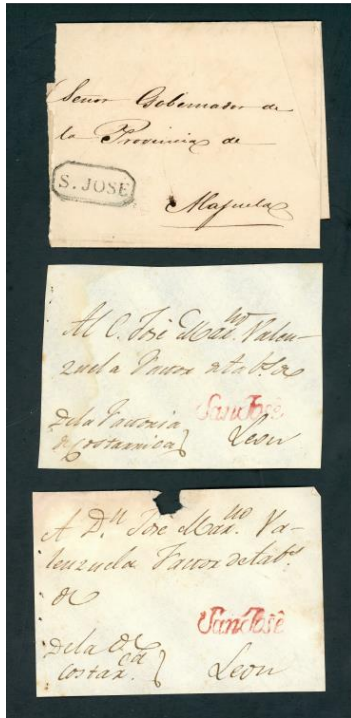 Señor Gobernador de
la Provincia de
S. JOSE
Alajuela
Al C. José Mar.no Valen-
zuela Factor de tab.s de
San José
de la Factoria
de Costarrica
Leon
A D.n José Mar.no Va-
lenzuela Factor de tab.s
de
San José
de la
Costar.ca
Leon